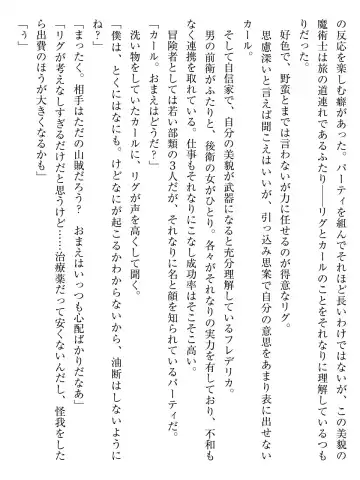 の反応を楽しむ癖があった。パーティを組んでそれほど長いわけではないが、この美貌の
魔術士は旅の道連れであるふたり――リグとカールのことをそれなりに理解しているつも
りだった。
　好色で、野蛮とまでは言わないが力に任せるのが得意なリグ。
　思慮深いと言えば聞こえはいいが、引っ込み思案で自分の意思をあまり表に出せない
カール。
　そして自信家で、自分の美貌が武器になると充分理解しているフレデリカ。
　男の前衛がふたりと、後衛の女がひとり。各々がそれなりの実力を有しており、不和も
なく連携を取れている。仕事もそれなりにこなし成功率はそこそこ高い。
　冒険者としては若い部類の３人だが、それなりに名と顔を知られているパーティだ。
「カール。おまえはどうだ？」
　洗い物をしていたカールに、リグが声を高くして聞く。
「僕は、とくにはなにも。けどなにが起こるかわからないから、油断はしないように
ね？」
「まったく。相手はただの山賊だろう？　おまえはいっつも心配ばかりだなあ」
「リグが考えなしすぎるだけだと思うけど……治療薬だって安くないんだし、怪我をした
ら出費のほうが大きくなるかも」
「うぅ」